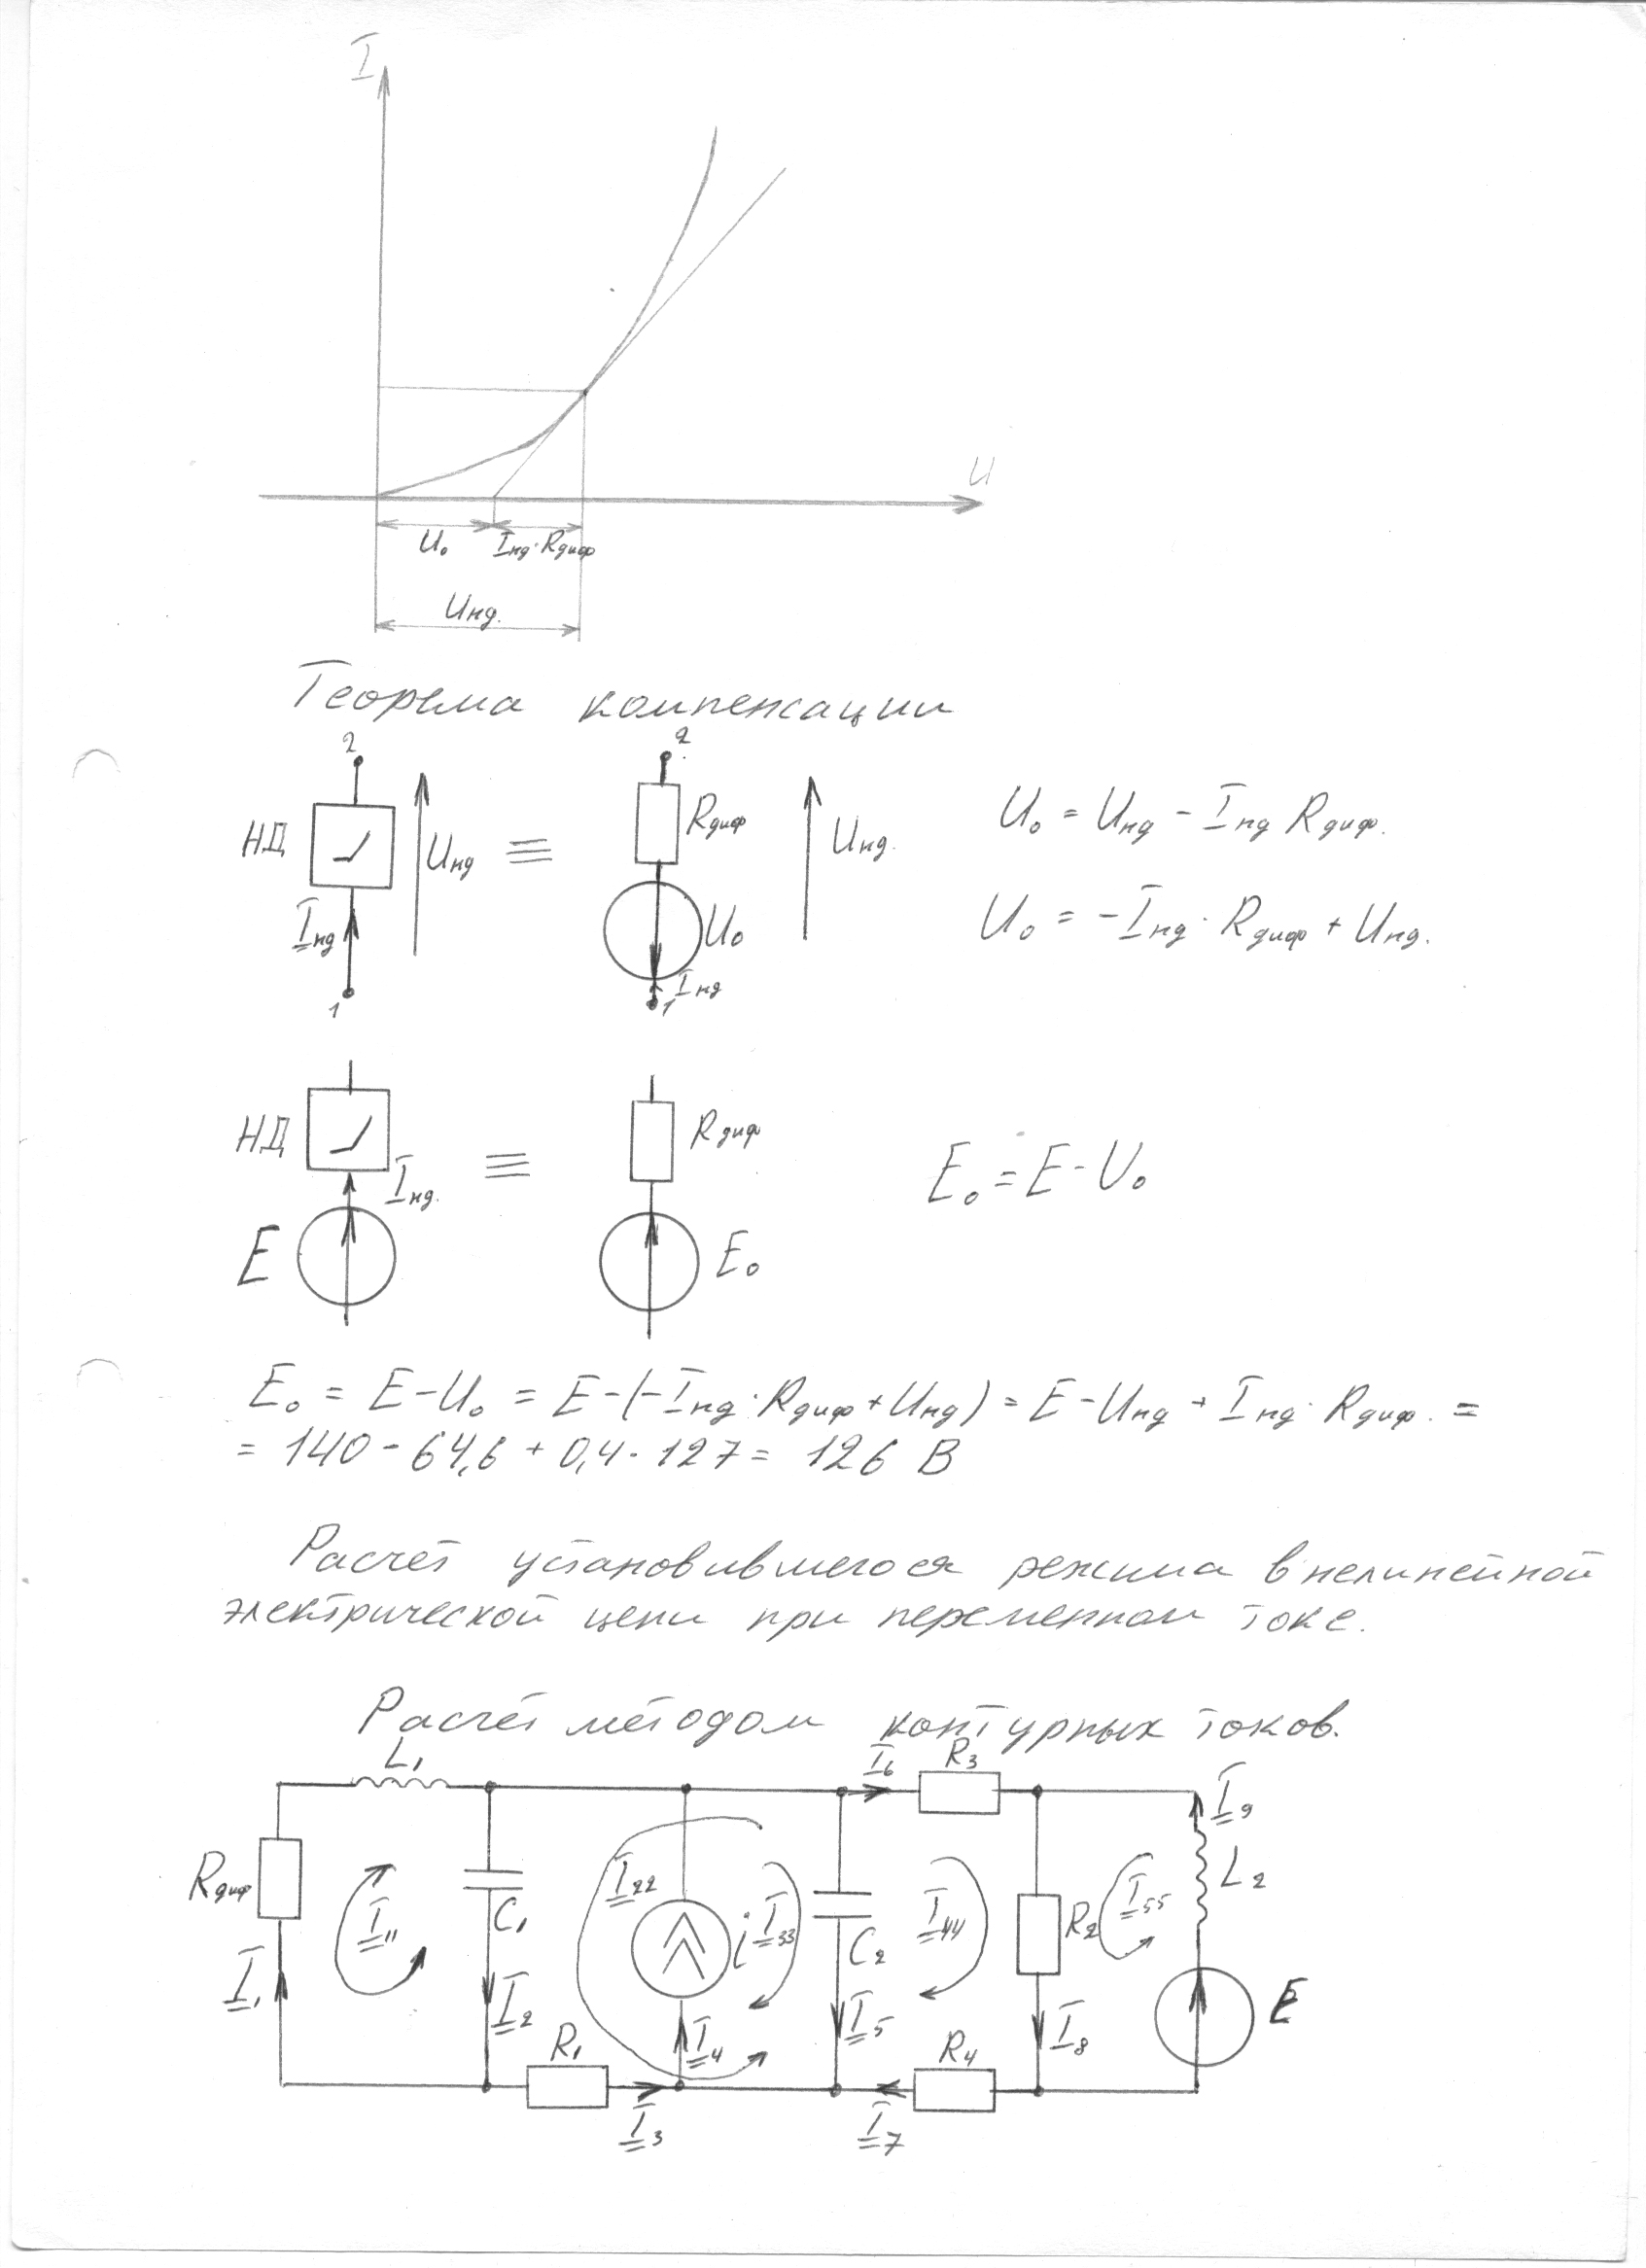 I
U
U₀ Iнд·Rдиф
Uнд.
Теорема компенсации
2 2
НД Uнд ≡ Rдиф Uнд. U₀ = Uнд - Iнд Rдиф.
Iнд U₀ U₀ = -Iнд · Rдиф + Uнд.
1 1 Iнд
НД Iнд. ≡ Rдиф E₀ = E - U₀
E E₀
E₀ = E - U₀ = E - (-Iнд · Rдиф + Uнд) = E - Uнд + Iнд · Rдиф. =
= 140 - 64,6 + 0,4 · 127 = 126 В
Расчёт установившегося режима в нелинейной
электрической цепи при переменном токе.
Расчёт методом контурных токов.
L₁ I₆ R₃
I₉
Rдиф I₁₁ C₁ I₂₂ i I₃₃ C₂ I₄₄ R₂ I₅₅ L₂
I₁ I₂ I₄ I₅ I₈ E
R₁ R₄
I₃ I₇